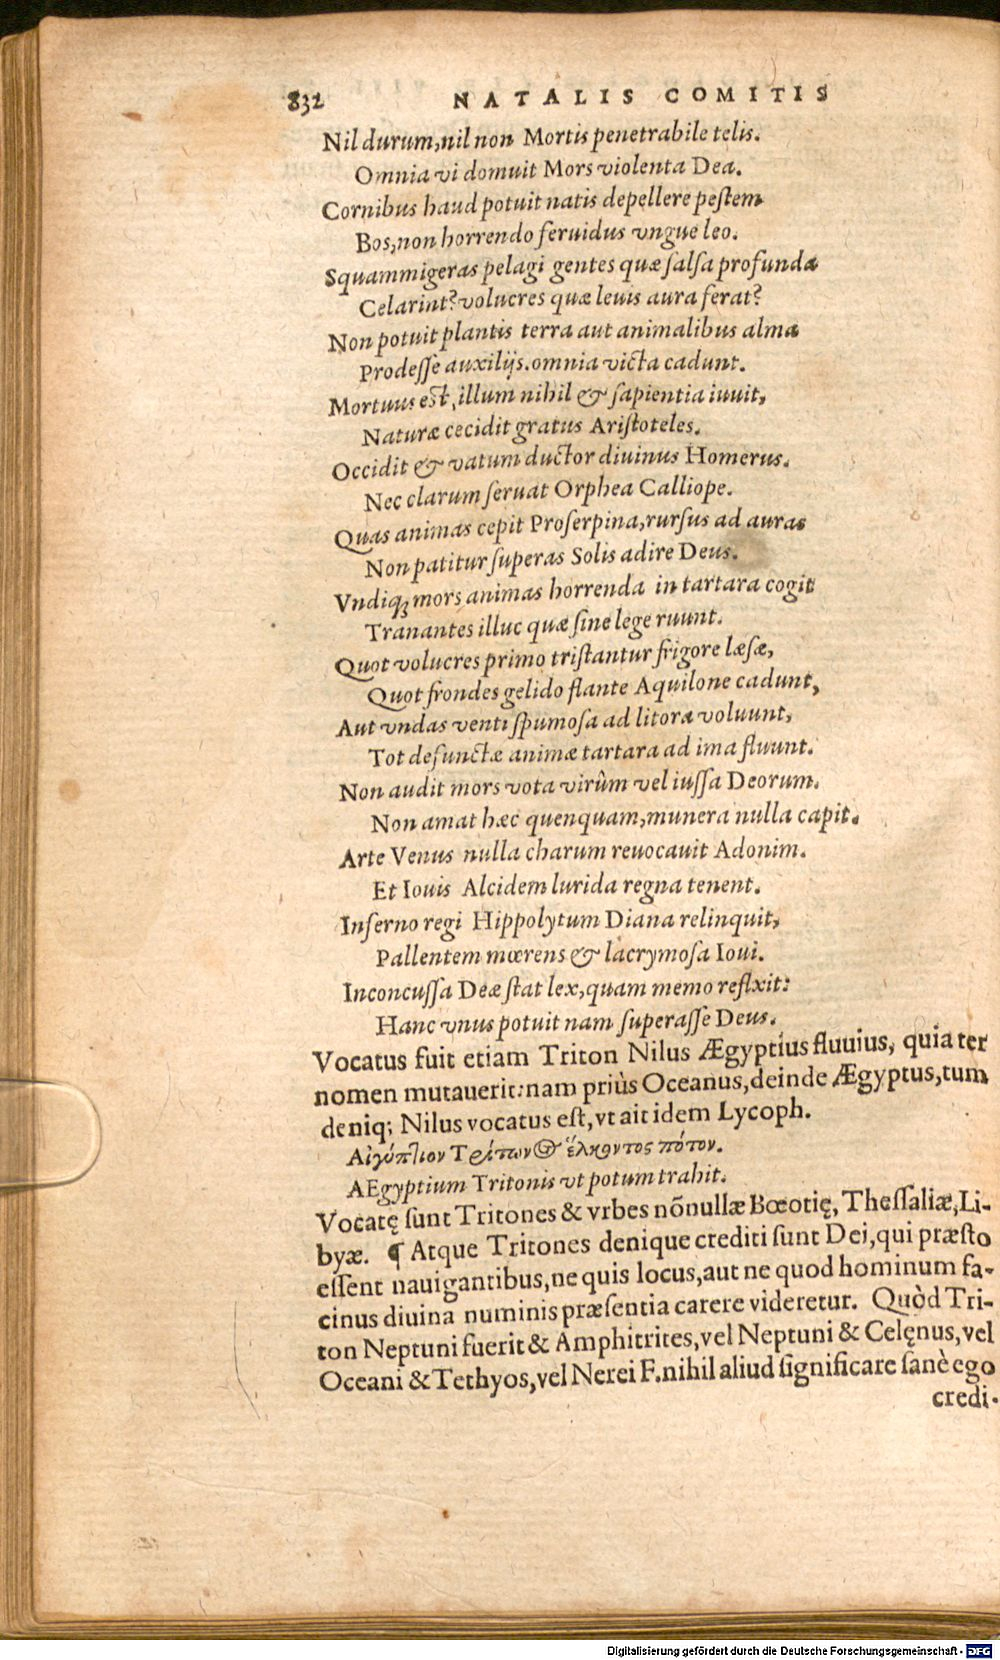 832 NATALIS COMITIS
Nil durum, nil non Mortis penetrabile telis.
Omnia vi domuit Mors violenta Dea.
Cornibus haud potuit natis depellere peſtem
Bos, non horrendo feruidus vngue leo.
Squammigeras pelagi gentes quæ ſalſa profunda
Celarint? volucres quæ leuis aura ferat?
Non potuit plantis terra aut animalibus alma
Prodeſſe auxilijs. omnia victa cadunt.
Mortuus eſt, illum nihil & ſapientia iuuit,
Naturæ cecidit gratus Ariſtoteles.
Occidit & vatum ductor diuinus Homerus.
Nec clarum ſeruat Orphea Calliope.
Quas animas cepit Proſerpina, rurſus ad auras
Non patitur ſuperas Solis adire Deus.
Vndiq; mors animas horrenda in tartara cogit
Tranantes illuc quæ ſine lege ruunt.
Quot volucres primo triſtantur frigore læſæ,
Quot frondes gelido flante Aquilone cadunt,
Aut vndas venti ſpumoſa ad litora voluunt,
Tot defunctæ animæ tartara ad ima fluunt.
Non audit mors vota virûm vel iuſſa Deorum.
Non amat hæc quenquam, munera nulla capit.
Arte Venus nulla charum reuocauit Adonim.
Et Iouis Alcidem lurida regna tenent.
Inferno regi Hippolytum Diana relinquit,
Pallentem mœrens & lacrymoſa Ioui.
Inconcuſſa Deæ ſtat lex, quam memo reflxit:
Hanc vnus potuit nam ſuperaſſe Deus.
Vocatus fuit etiam Triton Nilus Ægyptius fluuius, quia ter
nomen mutauerit: nam priùs Oceanus, deinde Ægyptus, tum
deniq; Nilus vocatus eſt, vt ait idem Lycoph.
Αἰγύπτιον Τρίτωνος ἕλκοντος πότον.
AEgyptium Tritonis vt potum trahit.
Vocatę ſunt Tritones & vrbes nõnullæ Bœotię, Theſſaliæ, Li-
byæ. ¶ Atque Tritones denique crediti ſunt Dei, qui præſto
eſſent nauigantibus, ne quis locus, aut ne quod hominum fa-
cinus diuina numinis præſentia carere videretur. Quòd Tri-
ton Neptuni fuerit & Amphitrites, vel Neptuni & Celęnus, vel
Oceani & Tethyos, vel Nerei F. nihil aliud ſignificare ſanè ego
credi-
Digitalisierung gefördert durch die Deutsche Forschungsgemeinschaft - DFG